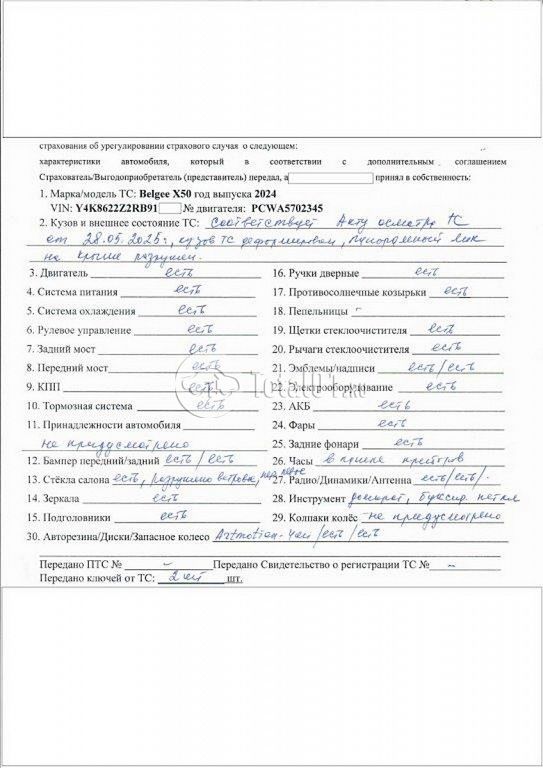 страхования об урегулировании страхового случая о следующем:
характеристики автомобиля, который в соответствии с дополнительным соглашением
Страхователь/Выгодоприобретатель (представитель) передал, а принял в собственность:
1. Марка/модель ТС: Belgee X50 год выпуска 2024
VIN: Y4K8622Z2RB91 № двигателя: PCWA5702345
2. Кузов и внешнее состояние ТС: Соответствует Акту осмотра ТС
от 28.05.2025г, кузов ТС деформирован, панорамный люк
на крыше разрушен.
3. Двигатель есть
4. Система питания есть
5. Система охлаждения есть
6. Рулевое управление есть
7. Задний мост есть
8. Передний мост есть
9. КПП есть
10. Тормозная система есть
11. Принадлежности автомобиля
не предусмотрено
12. Бампер передний/задний есть/есть
13. Стёкла салона есть, разрушено ветровое, левое
14. Зеркала есть
15. Подголовники есть
16. Ручки дверные есть
17. Противосолнечные козырьки есть
18. Пепельницы -
19. Щетки стеклоочистителя есть
20. Рычаги стеклоочистителя есть
21. Эмблемы/надписи есть/есть
22. Электрооборудование есть
23. АКБ есть
24. Фары есть
25. Задние фонари есть
26. Часы в приборов
27. Радио/Динамики/Антенна есть/есть/-
28. Инструмент домкрат, буксир. петля
29. Колпаки колёс не предусмотрено
30. Авторезина/Диски/Запасное колесо Artmotion-4шт/есть/есть
Передано ПТС № - Передано Свидетельство о регистрации ТС № -
Передано ключей от ТС: 2 шт шт.
Total01.ru